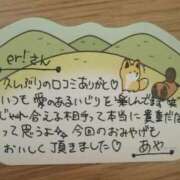 er!さん
久しぶりの口コミありがと♡
いつも愛のあるいじりを楽しんでます笑
じゃれ合える相手って本当に貴重だな
って思うよなぁ 今回のおみやげも
おいしく頂きました♡
あや